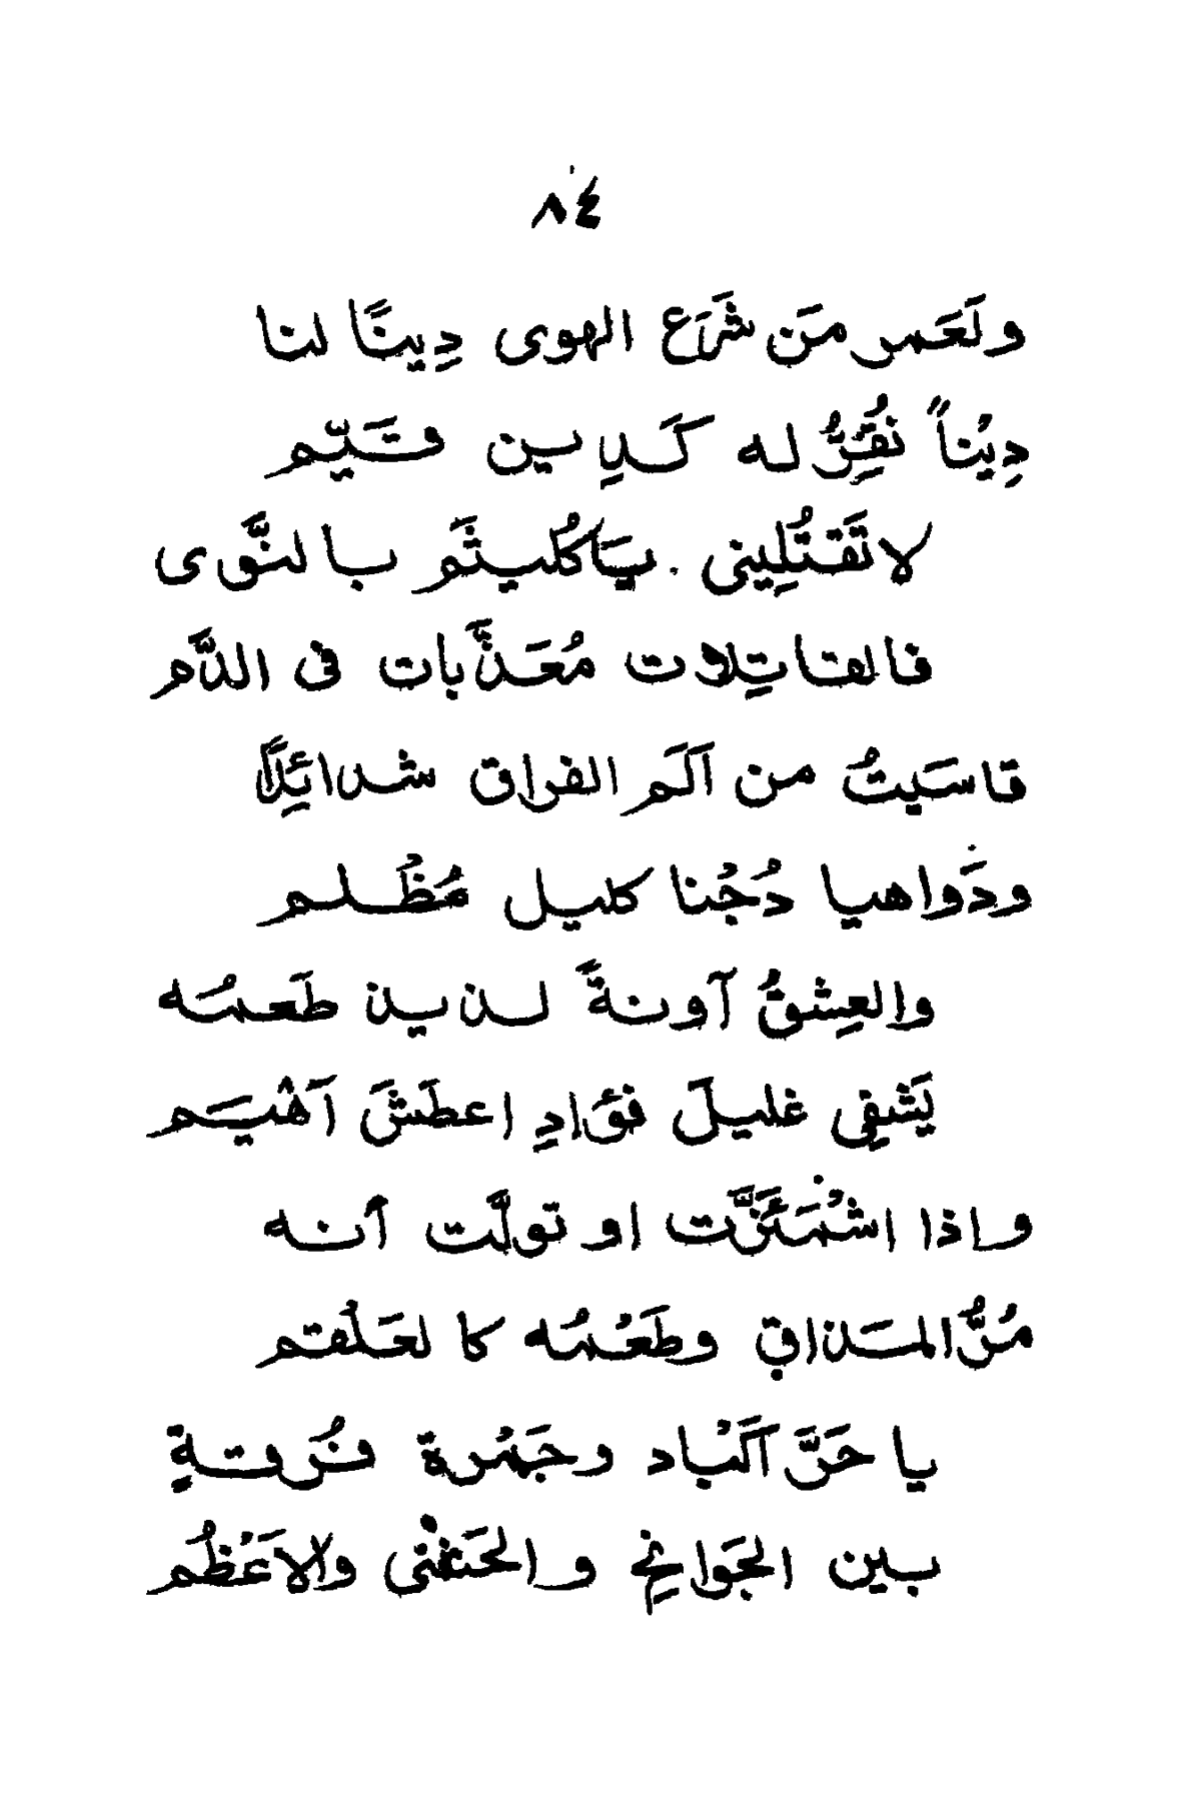 ٨٤
ولَعَمر مَن شَرَع الهوى دِينًا لنا
دِيْناً نُقِرُّ له كَدِين قَيّم
لا تَقتُلِينى . يَاكُليثَم بالنَّوى
فالقاتِلات مُعَذَّبات فى الدَّم
قاسَيتُ من اَلَم الفراق شدائِدًا
ودَواهيا دُجُنا كليل مُظْلم
والعِشقُ آونةً لذيذ طَعمُه
يَشفِى غليلَ فؤَادِ اعطَشَ اَهْيَم
واذا اشْمَئَزَّت او تولَّت أنه
مُرُّ المَذاقِ وطَعْمُه كالعَلْقم
يا حَرَّ اَكْباد وجَمْرة فُرقةٍ
بين الجَوانِحِ والحَشْى والاَعْظُم